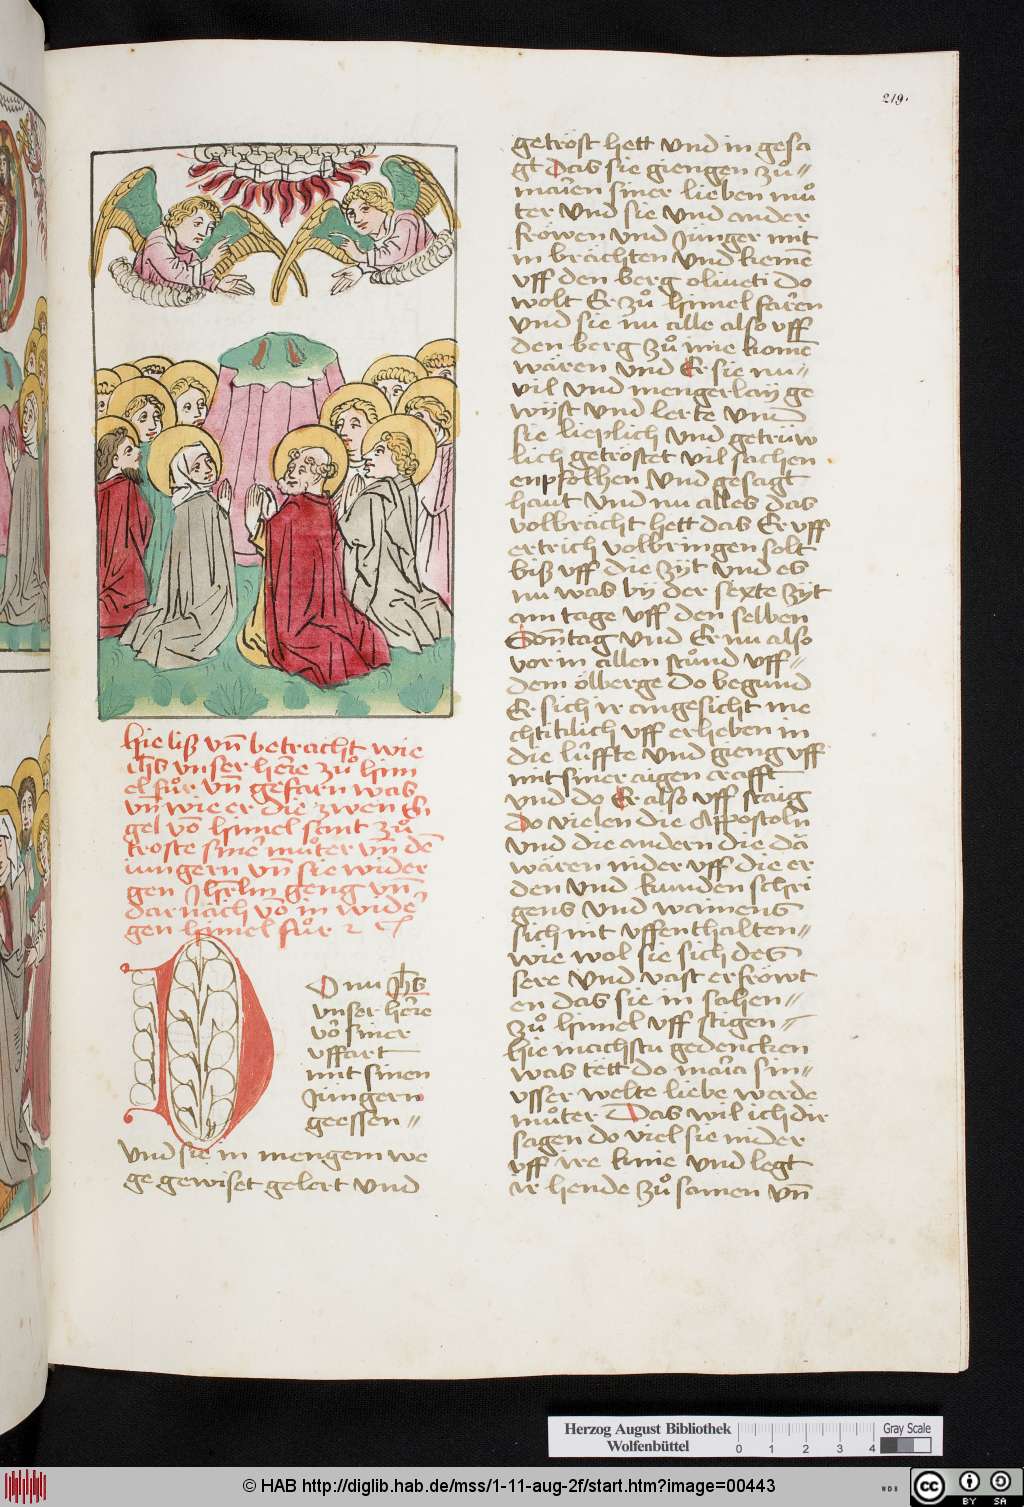 219.
hie liß vn̄ betracht wie
ih̄s vnser here zů him
el fůr vn̄ gefarn was
vn̄ wie er die zwen En
gel vō himel sant zů
troste siner můter vn̄ dē
iungern vn̄ sie wider
gen Jh̄rlm̄ geng vn̄
dar nach vō in wider
gen himel fůr ꝛ c
Do nu Jh̄s
vnser here
vō siner
vffart
mit sinen
Jüngern
geessen〃
vnd sie in mengem we
ge gewiset gelert vnd
getröst hett vnd in gesa
gt das sie giengen zů〃
marien siner lieben mů
ter vnd sie vnd ander
fröwen vnd Jünger mit
in brächten vnd kemē
vff den berg oliueti do
wolt Er zů himel faren
vnd sie nu alle also vff
den berg zů mie komē
wären vnd Er sie nu〃
vil vnd mengerlay ge
wijst vnd lerte vnnd
sie lieplich vnd getrüw
lich getröstet vil sachen
enpfolhen vnd gesagt
haut vnd nu alles das
volbrächt hett das Er vff
ertrich volbringen solt
biß vff die zijt vnd es
nu was bij der sexte zijt
am tage vff den selben
Sonntag vnd Er nu also
vor in allen stůnd vff〃
dem ölberge do begund
Er sich ir angesicht me
chtitlich vff erheben in
die lüffte vnd gieng vff
mit siner aigen crafft
vnd do Er also vff staig
do vielen die Appostoln
vnd die andern die dā
wären nider vff die er
den vnd kunden schri
gens vnd wainens
sich nit vffenthalten〃
wie wol sie sich des
sere vnd vast erfröwt
en das sie in sahen〃
zů himel vff stigen〃
hie machstu gedencken
was tett do maria sin〃
vsser welte liebe werde
můter Das wil ich dir
sagen do viel sie nider
vff ire knie vnd legt
ir hende zů samen vn̄
Herzog August Bibliothek
Wolfenbüttel
0 1 2 3 4
Gray Scale
© HAB http://diglib.hab.de/mss/1-11-aug-2f/start.htm?image=00443
WDB
cc BY SA